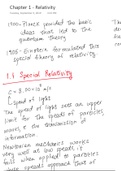 Chapter 1 - Relativity
1900 - Planck provided the basic
ideas that led to the
quantum theory
1905 - Einstein formulated the
special theory of relativity.
1.1 Special Relativity
C = 3.00 × 10⁸ m/s
(speed of light
The speed of light sets an upper
limit for the speeds of particles,
waves, & the transmission of
information.
Newtonian mechanics works
very well at low speeds, it
fails when applied to particles
speeds approach that of